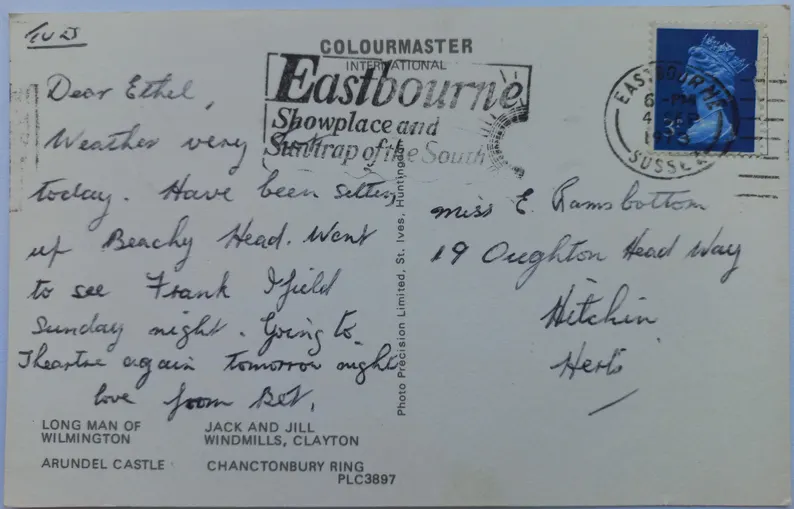 TUES
COLOURMASTER
INTERNATIONAL
Eastbourne
Showplace and
Suntrap of the South
EASTBOURNE
6-PM
4 SEP
SUSSEX
Dear Ethel,
Weather very hot
today. Have been sitting
up Beachy Head. Went
to see Frank Ifield
Sunday night. Going to
Theartre again tomorrow night
love from Bet.
Miss E Ramsbottom
19 Oughton Head Way
Hitchin
Herts
Photo Precision Limited, St. Ives, Huntingdon
LONG MAN OF
WILMINGTON
JACK AND JILL
WINDMILLS, CLAYTON
ARUNDEL CASTLE
CHANCTONBURY RING
PLC3897